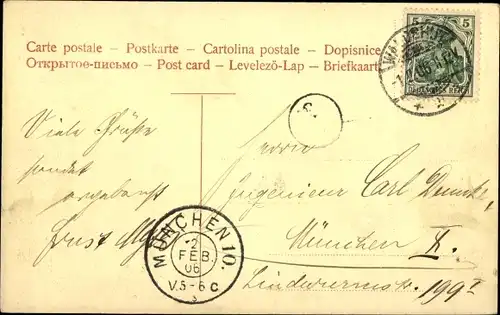 Carte postale – Postkarte – Cartolina postale – Dopisnice
Открытое-письмо – Post card – Levelező-Lap – Briefkaart
5 5
DEUTSCHES REICH
Viele Grüße
sendet
ergebenst
Ernst
MÜNCHEN 10.
2
FEB.
06
V.5-6 C
Herrn
Ingenieur Carl
München X.
Lindwurmstr. 199I